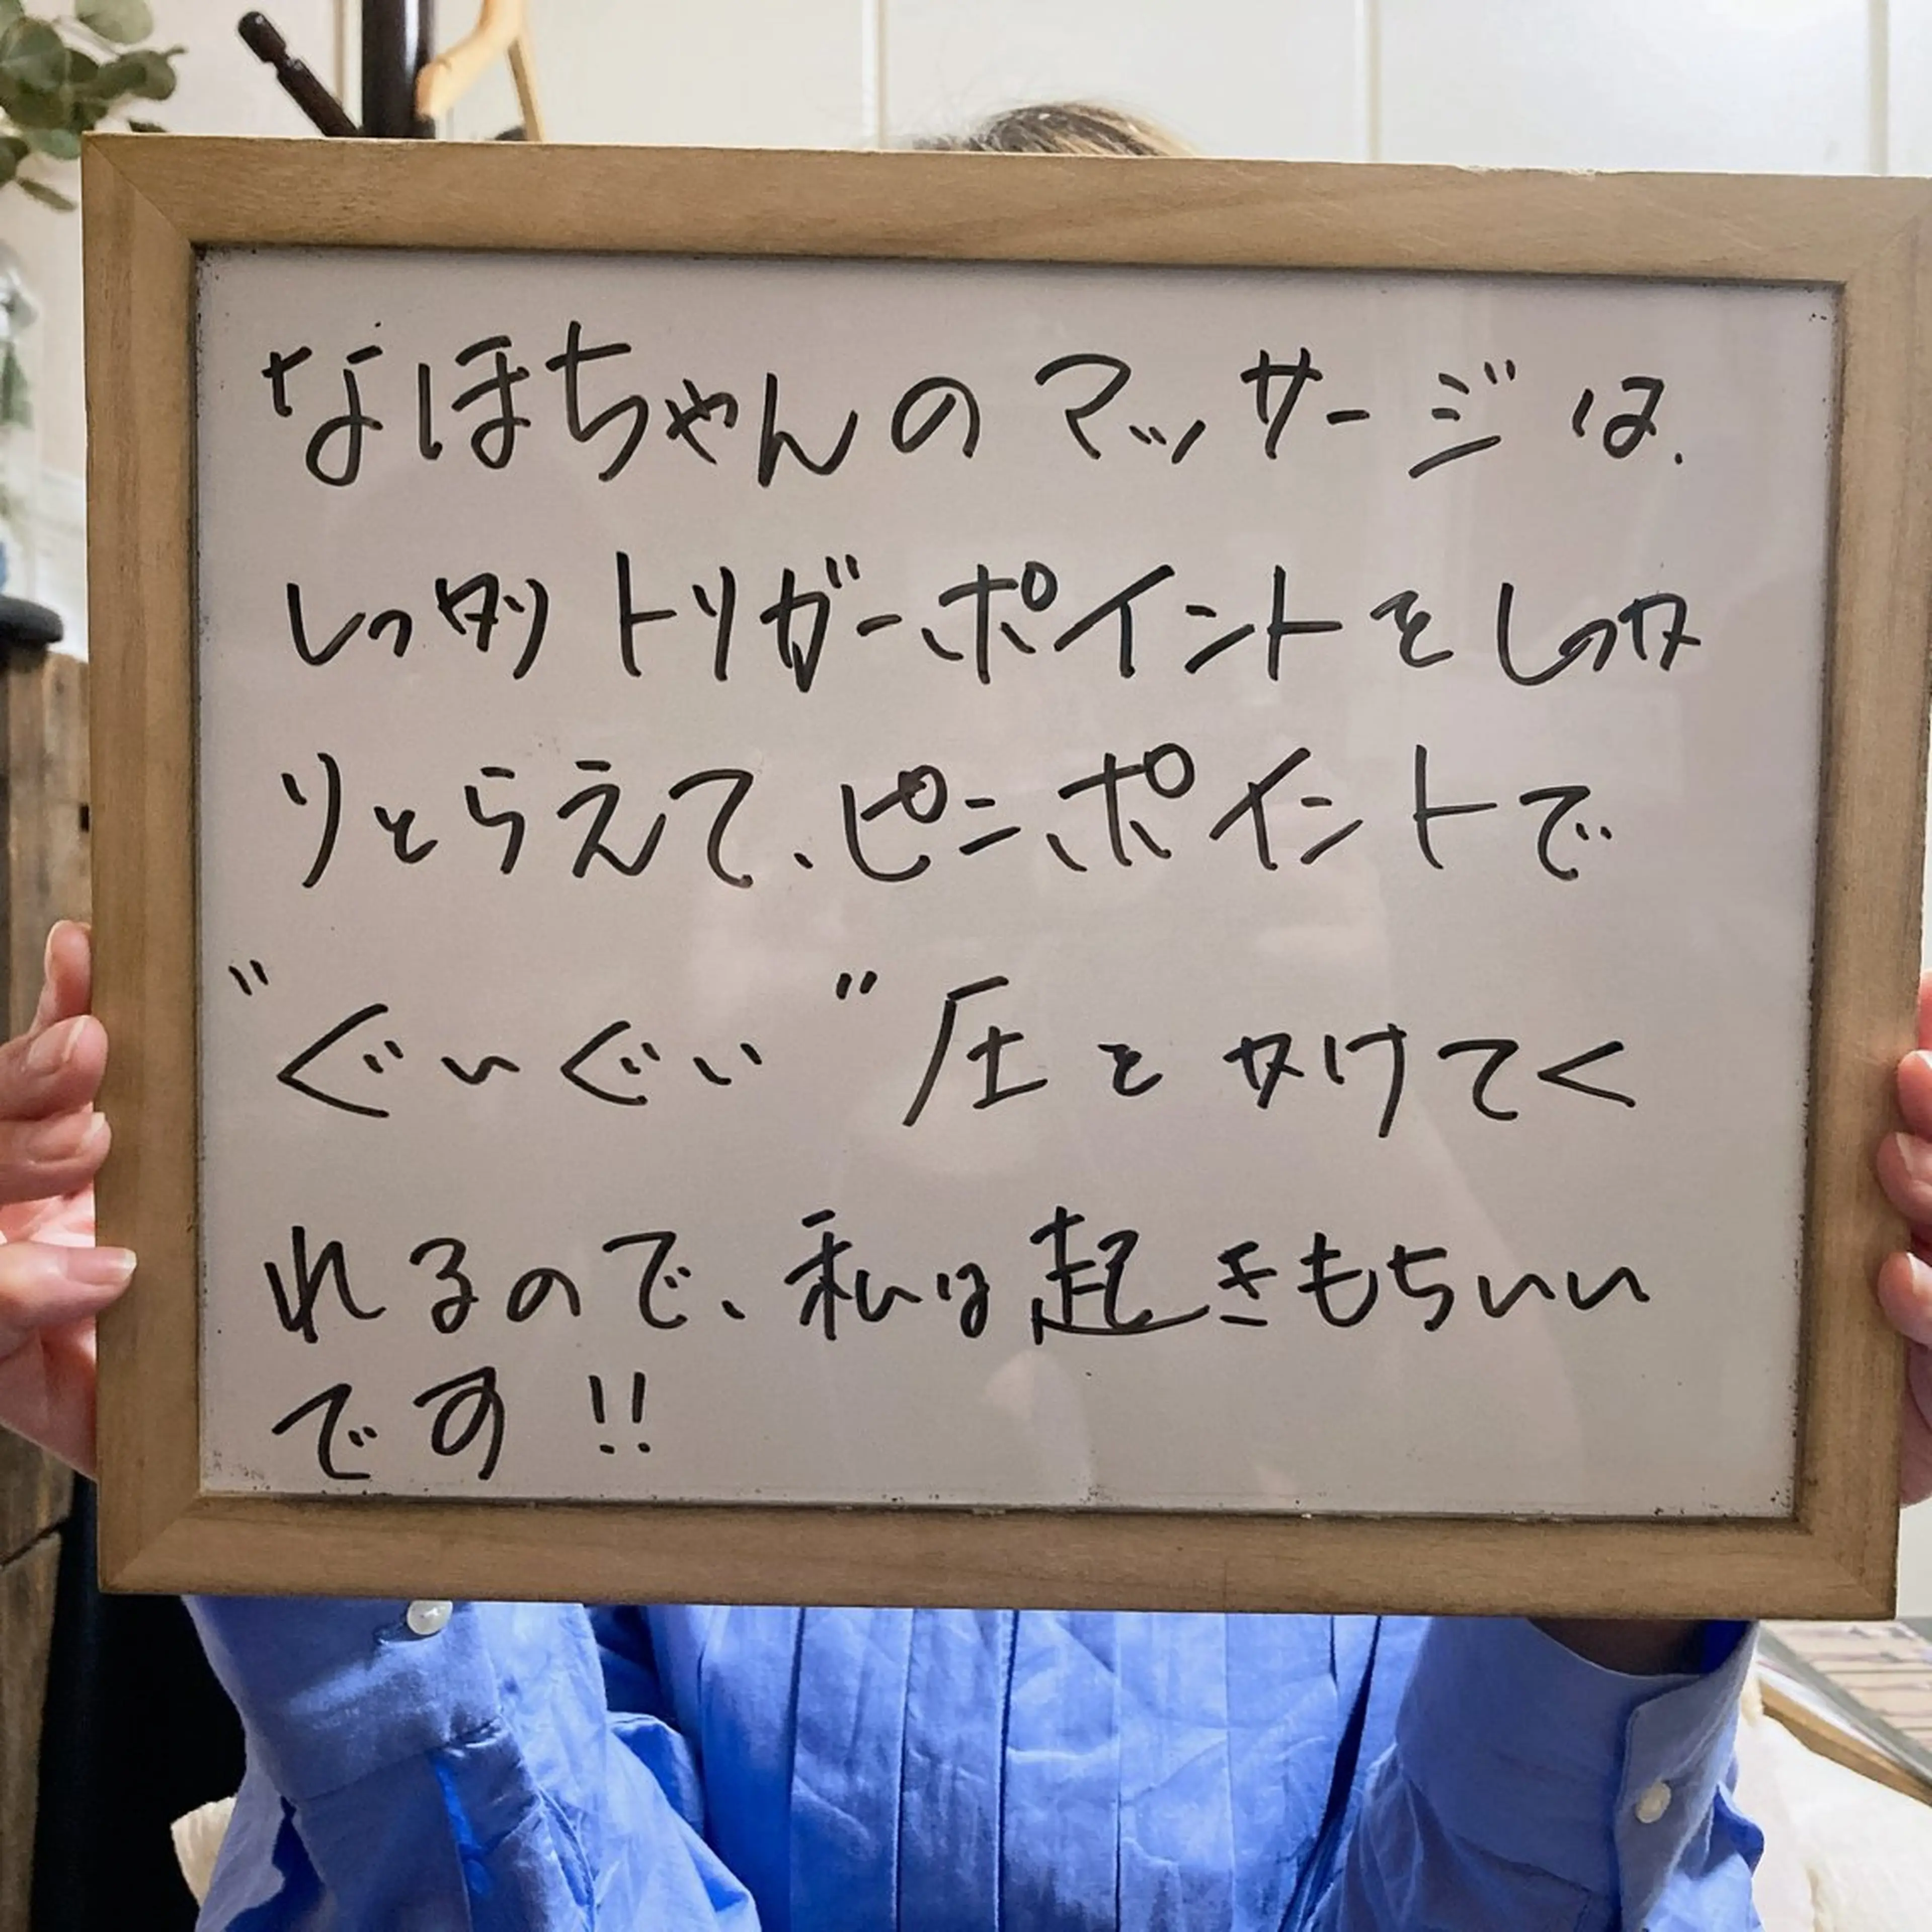 なほちゃんのマッサージは、
しっかりトリガーポイントをしっか
りとらえて、ピンポイントで
"ぐいぐい"圧をかけてく
れるので、私は起きもちいい
です!!